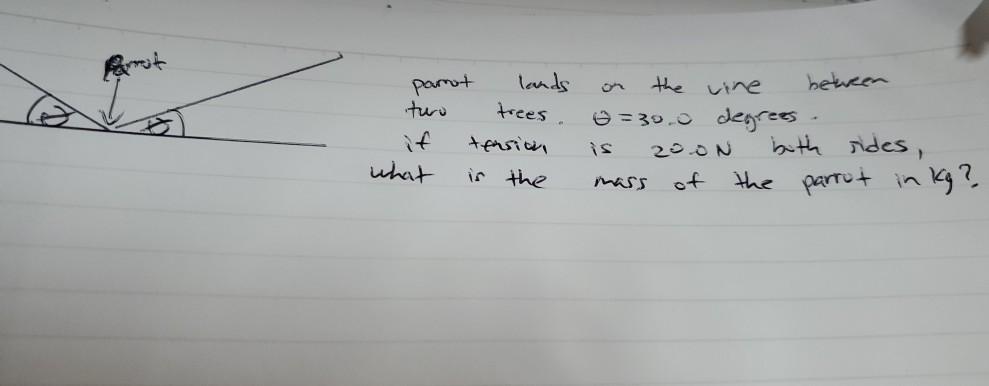 Parrot
θ
θ
parrot lands on the vine between
two trees. θ = 30.0 degrees.
if tension is 20.0N both sides,
what is the mass of the parrot in kg?